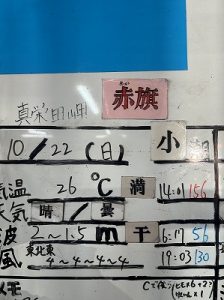 真栄田岬
赤旗
10/22(日) 小潮
気温 26℃ 満 14:01 156
天気 晴/曇
波 2~1.5m 干 6:17 56
風 東北東 4~4~4~4 19:03 30
メモ